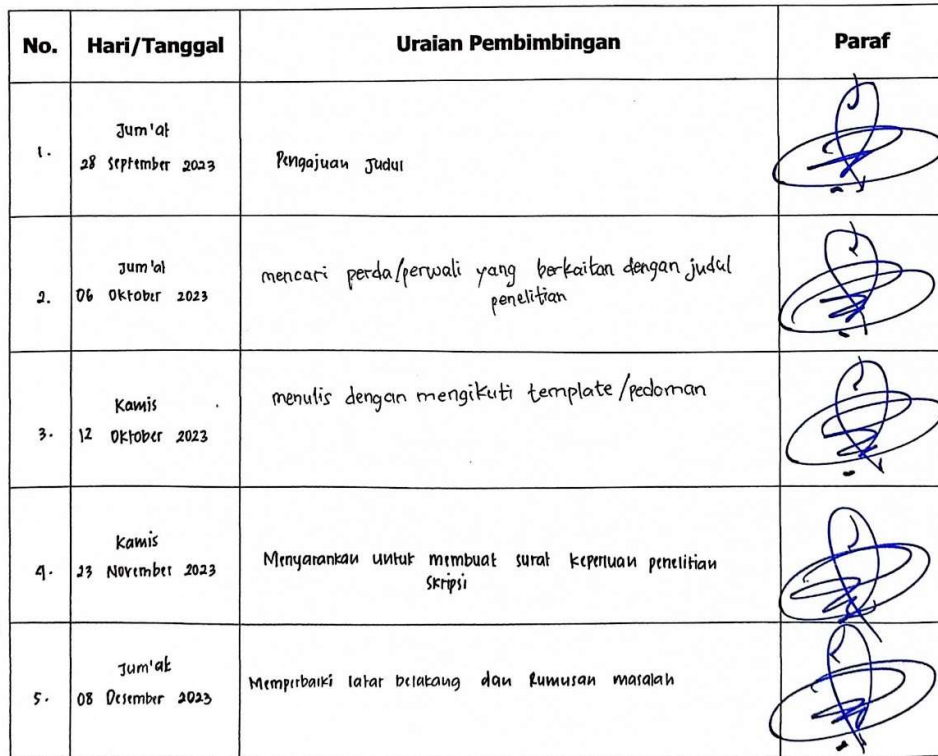 No. Hari/Tanggal Uraian Pembimbingan Paraf
Jum'at
1. 28 September 2023 Pengajuan Judul
Jum'at
mencari perda/perwali yang berkaitan dengan judul
2. 06 Oktober 2023 penelitian
Kamis
menulis dengan mengikuti template/pedoman
3. 12 Oktober 2023
Kamis
4. 23 November 2023 Menyarankan untuk membuat surat keperluan penelitian
skripsi
Jum'at
5. 08 Desember 2023 Memperbaiki latar belakang dan Rumusan masalah